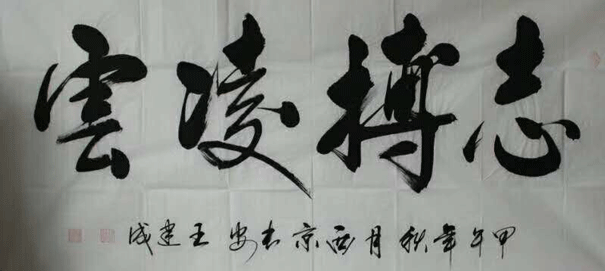 志搏凌雲
甲午年秋月西京長安王建成